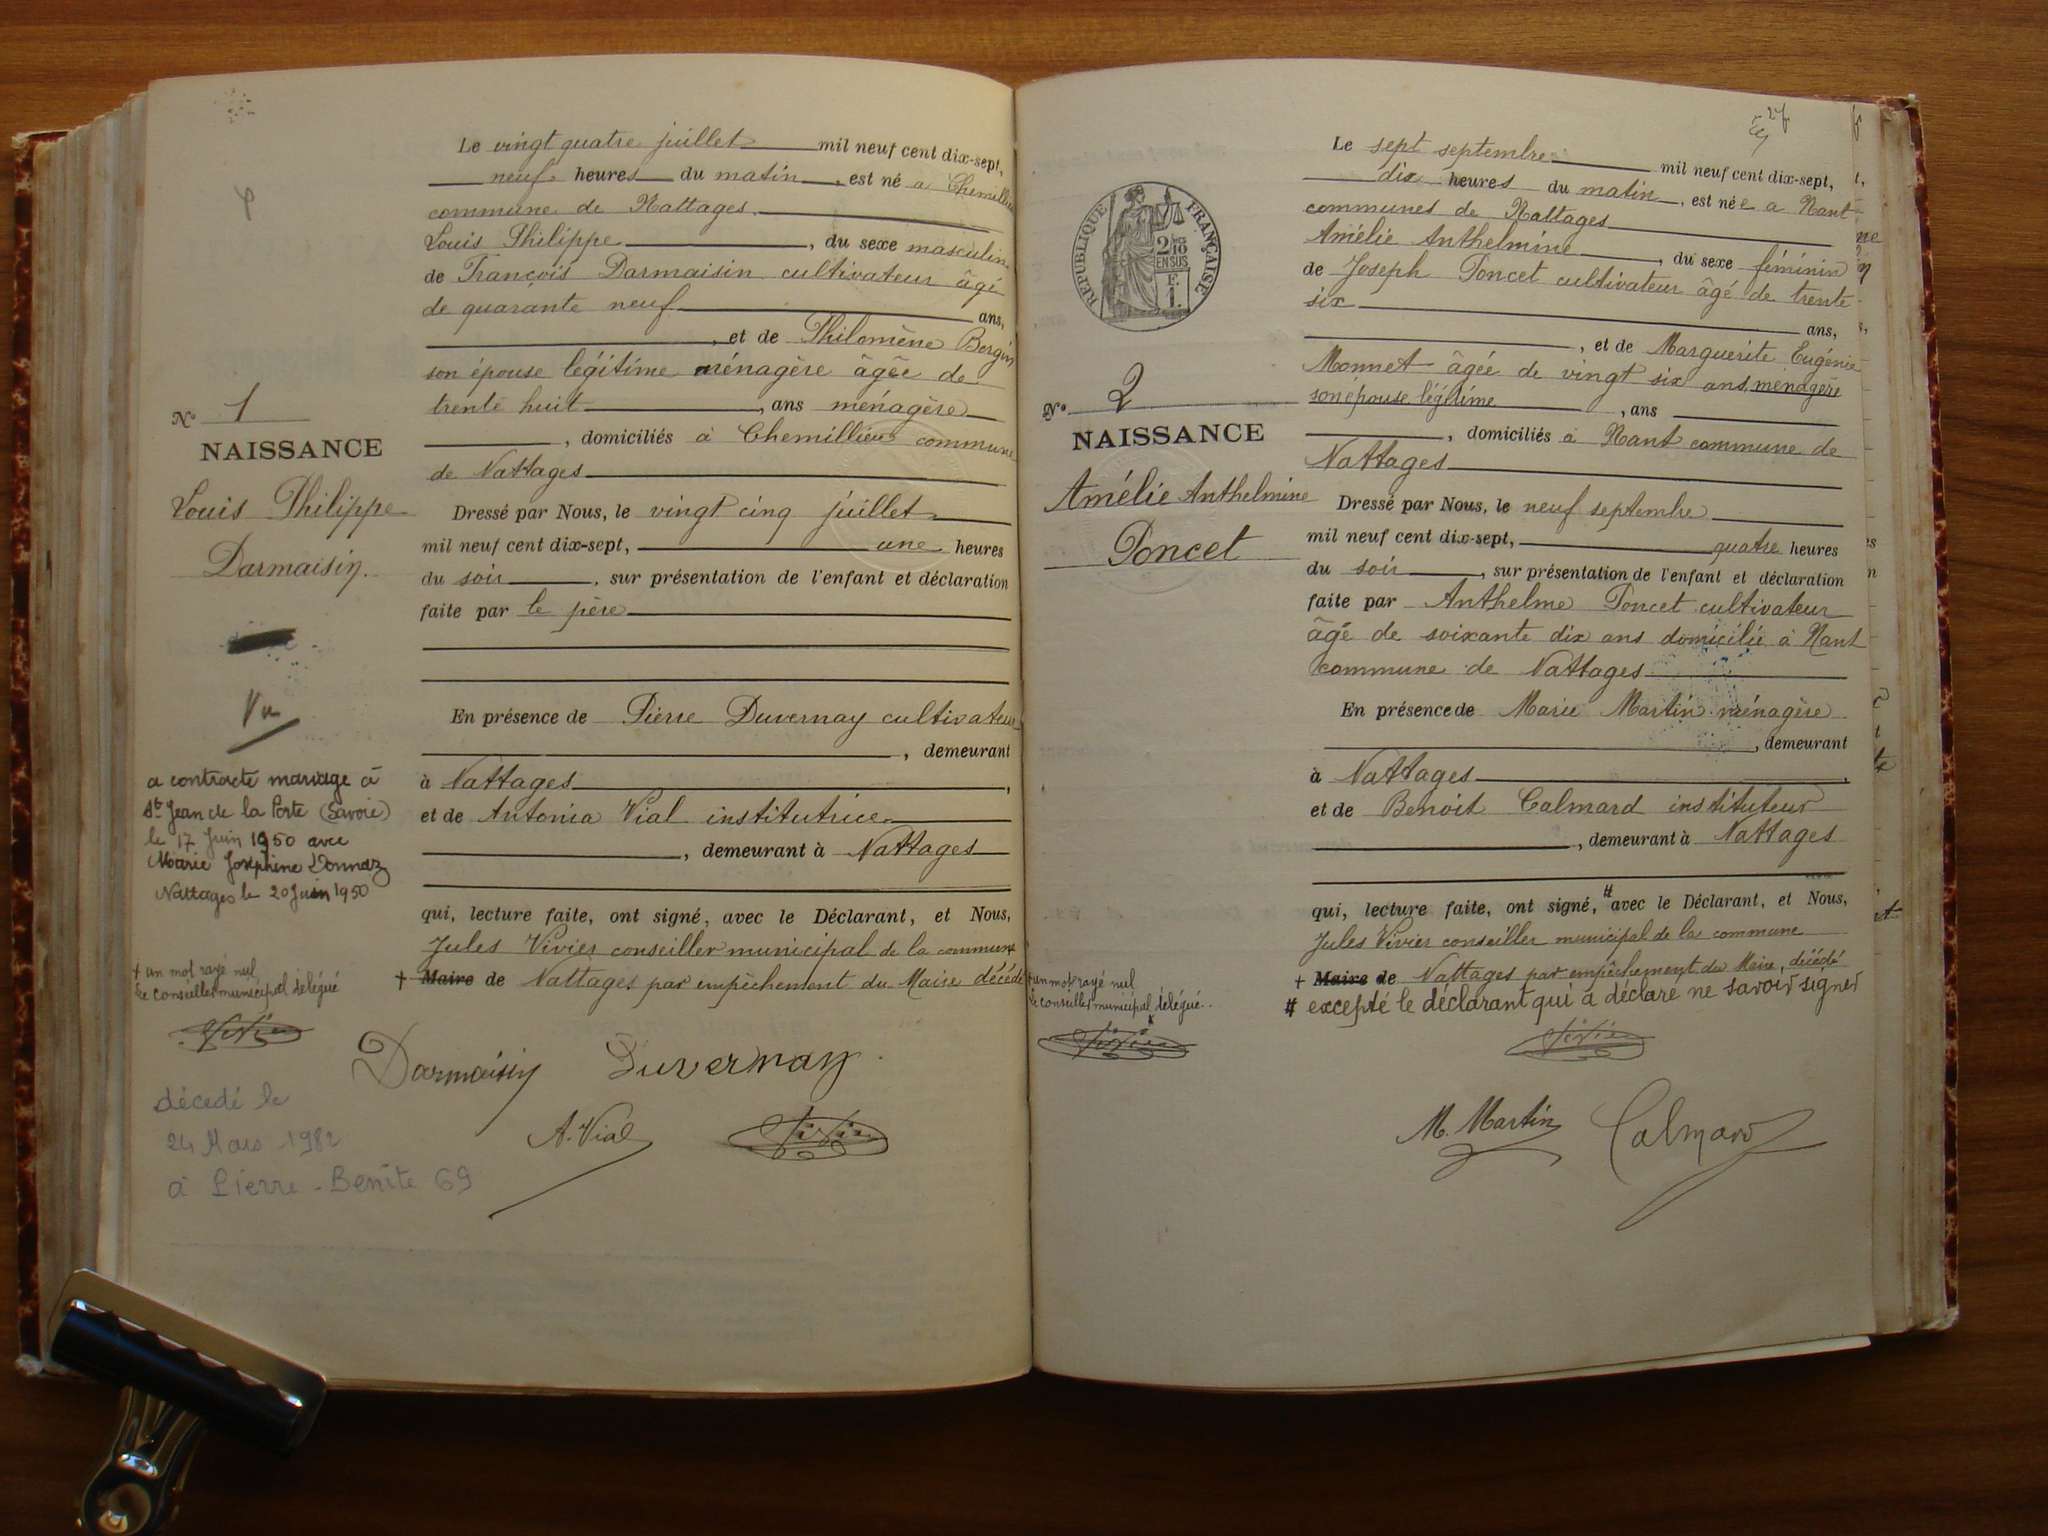 Le vingt quatre juillet mil neuf cent dix-sept,
neuf heures du matin, est né a Chemillieu
commune de Nattages.
Louis Philippe, du sexe masculin
de François Darmaisin cultivateur âgé
de quarante neuf ans,
, et de Philomène Bergin
son épouse légitime ménagère âgée de
trente huit, ans ménagère
, domiciliés à Chemillieu commune
de Nattages
Dressé par Nous, le vingt cinq juillet
mil neuf cent dix-sept, une heures
du soir, sur présentation de l'enfant et déclaration
faite par le père
En présence de Pierre Duvernay cultivateur
, demeurant
à Nattages,
et de Antonia Vial institutrice
, demeurant à Nattages
qui, lecture faite, ont signé, avec le Déclarant, et Nous,
Jules Vivier conseiller municipal de la commune
+ Maire de Nattages par empêchement du Maire décédé
N° 1
NAISSANCE
Louis Philippe
Darmaisin.
Vu
a contracté mariage à
St Jean de la Porte (Savoie)
le 17 Juin 1950 avec
Marie Joséphine Donnaz
Nattages le 20 Juin 1950
+ un mot rayé nul
Le conseiller municipal délégué
Vivier
Darmaisin Duvernay
A. Vial Vivier
décedé le
24 Mars 1982
à Pierre-Bénite 69
27
REPUBLIQUE FRANÇAISE
2/10
EN SUS
F.
1.
Le sept septembre mil neuf cent dix-sept,
dix heures du matin, est née a Nant
communes de Nattages
Amélie Anthelmine, du sexe féminin
de Joseph Poncet cultivateur âgé de trente
six
ans,
, et de Marguerite Eugénie
Monnet âgée de vingt six ans, ménagère
son épouse légitime, ans
, domiciliés à Nant commune de
Nattages
Dressé par Nous, le neuf septembre
mil neuf cent dix-sept, quatre heures
du soir, sur présentation de l'enfant et déclaration
faite par Anthelme Poncet cultivateur
âgé de soixante dix ans domicilié à Nant
commune de Nattages
En présence de Marie Martin ménagère
, demeurant
à Nattages,
et de Benoit Calmard instituteur
, demeurant à Nattages
qui, lecture faite, ont signé, # avec le Déclarant, et Nous,
Jules Vivier conseiller municipal de la commune
+ Maire de Nattages par empêchement du Maire, décédé
# excepté le déclarant qui a déclaré ne savoir signer
Vivier
N° 2
NAISSANCE
Amélie Anthelmine
Poncet
+ un mot rayé nul
Le conseiller municipal délégué.
Vivier
M. Martin Calmard